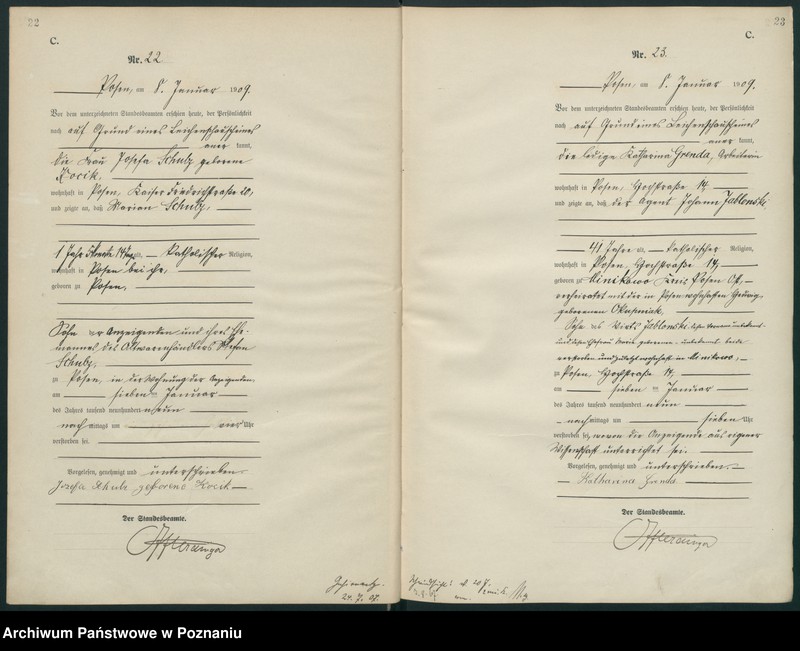 22
C.
Nr. 22
Posen, am 8. Januar 1909.
Vor dem unterzeichneten Standesbeamten erschien heute, der Persönlichkeit
nach auf Grund eines Leichenschauscheines
aner kannt,
die Frau Josefa Schulz geborene
Kocik,
wohnhaft in Posen, Kaiser Friedrichstraße
und zeigte an, daß Marian Schulz,
1 Jahr 5 Monate 14 Tage alt, katholischer Religion,
wohnhaft in Posen bei ihr,
geboren zu Posen,
Sohn der Anzeigenden und ihres Ehe-
mannes, des Altwarenhändlers Stefan
Schulz,
zu Posen, in der Wohnung der Anzeigenden,
am sieben ten Januar
des Jahres tausend neunhundert neun
nachmittags um vier Uhr
verstorben sei.
Vorgelesen, genehmigt und unterschrieben.
Josefa Schulz geborene Kocik
Der Standesbeamte.
23
C.
Nr. 23.
Posen, am 8. Januar 1909.
Vor dem unterzeichneten Standesbeamten erschien heute, der Persönlichkeit
nach auf Grund eines Leichenschauscheines
aner kannt,
die ledige Katharina Grenda, Arbeiterin
wohnhaft in Posen, Hochstraße 14,
und zeigte an, daß der Agent Johann Jablonski,
41 Jahre alt, katholischer Religion,
wohnhaft in Posen, Hochstraße 14,
geboren zu Minikowo Kreis Posen Ost,
verheiratet mit der in Posen wohnhaften Hedwig,
geborenen
Sohn des Wirts Jablonski,
verstorben und zuletzt wohnhaft in Minikowo,
zu Posen, Hochstraße 14,
am sieben ten Januar
des Jahres tausend neunhundert neun
nachmittags um sieben Uhr
verstorben sei, wovon die Anzeigende aus eigener
Wissenschaft unterrichtet sei.
Vorgelesen, genehmigt und unterschrieben.
Katharina Grenda
Der Standesbeamte.
Archiwum Państwowe w Poznaniu